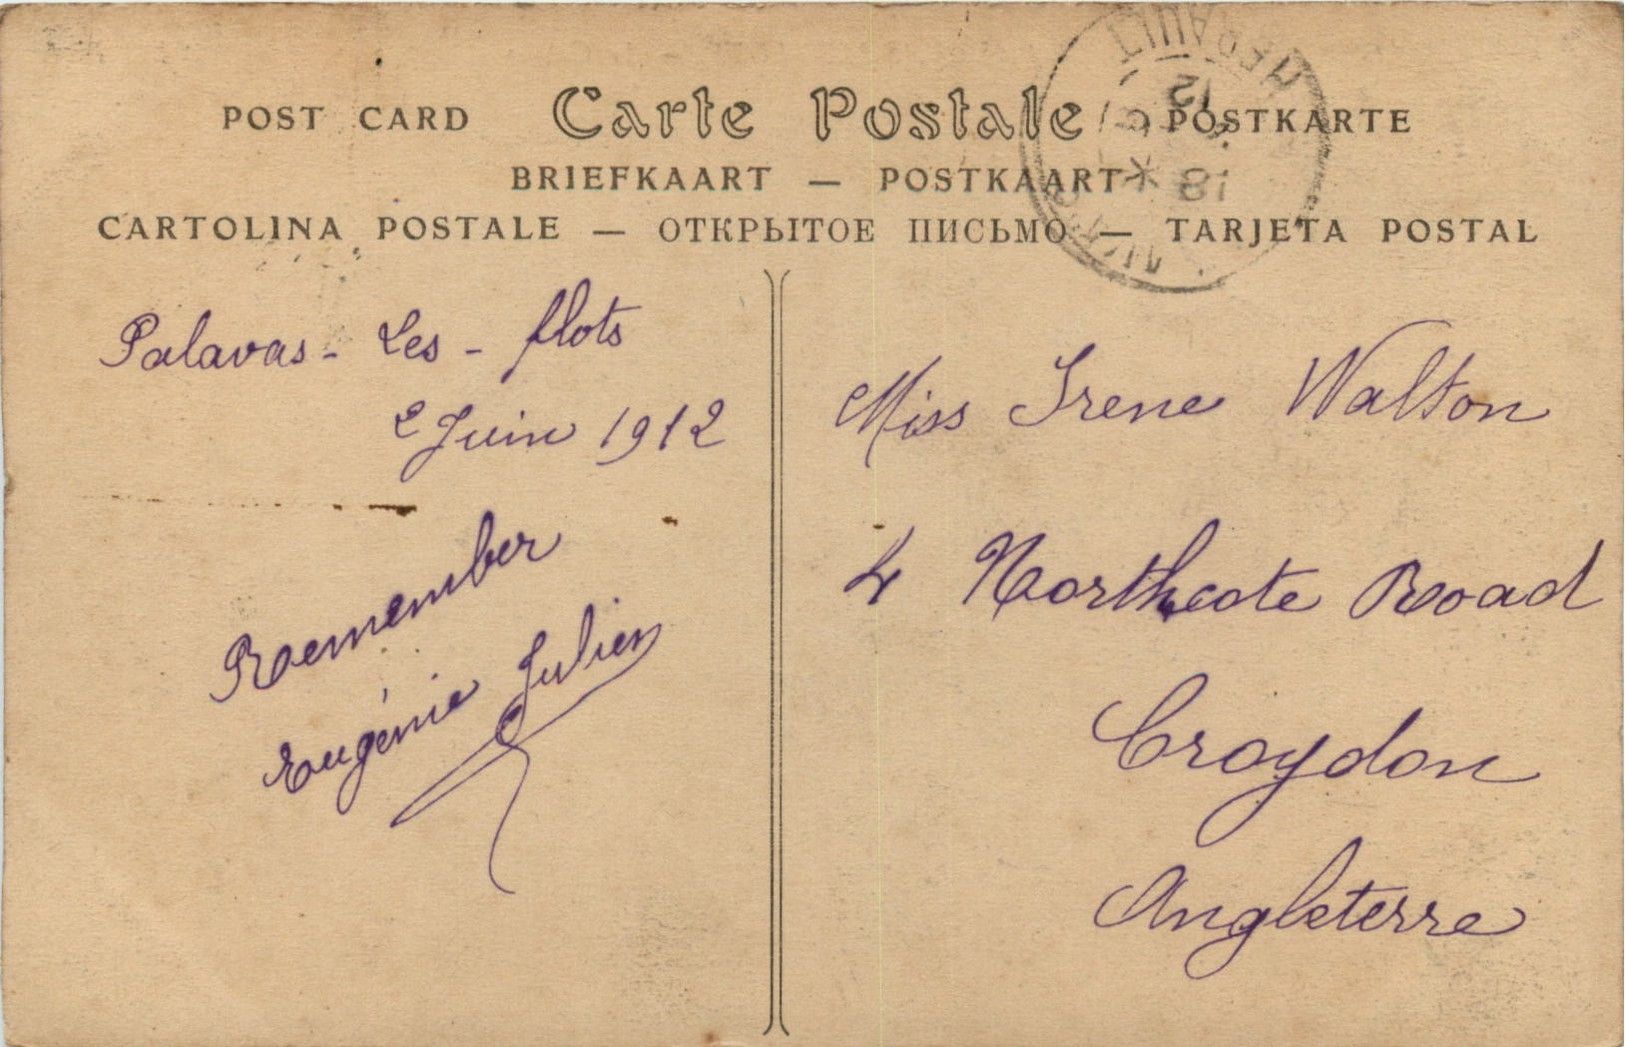 POST CARD Carte Postale POSTKARTE
BRIEFKAART — POSTKAART
CARTOLINA POSTALE — ОТКРЫТОЕ ПИСЬМО — TARJETA POSTAL
HERAULT
12
18
Palavas - Les - flots
2 Juin 1912
Remember
Eugénie Julien
Miss Irene Walton
4 Northcote Road
Croydon
Angleterre